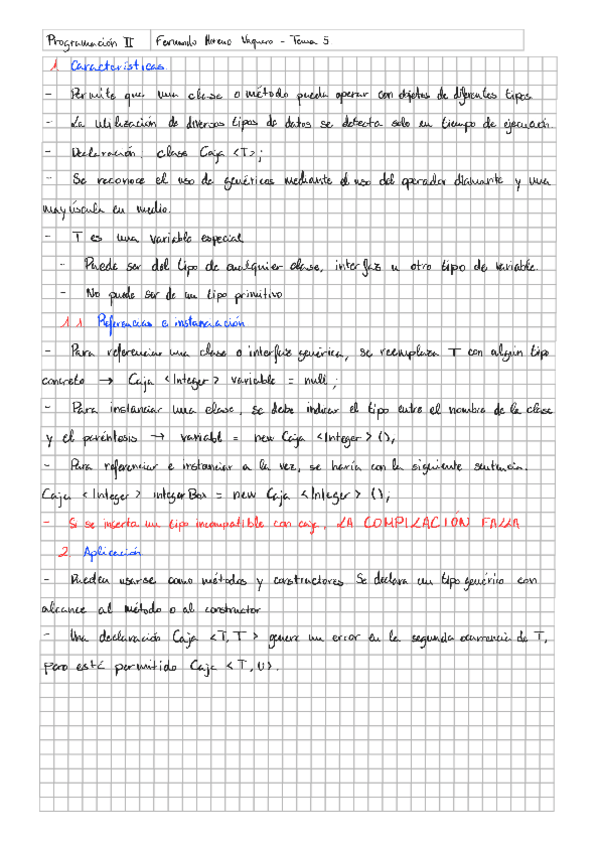 Programación II Fernando Moreno Vaquero - Tema 5
1. Características.
- Permite que una clase o método pueda operar con objetos de diferentes tipos.
- La utilización de diversos tipos de datos se detecta solo en tiempo de ejecución.
- Declaración: clase Caja <T>;
- Se reconoce el uso de genéricos mediante el uso del operador diamante y una
mayúscula en medio.
- T es una variable especial
- Puede ser del tipo de cualquier clase, interfaz u otro tipo de variable.
- No puede ser de un tipo primitivo
1.1. Referencias e instanciación
- Para referenciar una clase o interfaz genérica, se reemplaza T con algún tipo
concreto → Caja <Integer> variable = null;
- Para instanciar una clase, se debe indicar el tipo entre el nombre de la clase
y el paréntesis → variable = new Caja <Integer> ();
- Para referenciar e instanciar a la vez, se haría con la siguiente sentencia.
Caja <Integer> integerBox = new Caja <Integer> ();
- Si se inserta un tipo incompatible con caja, LA COMPILACIÓN FALLA
2. Aplicación
- Pueden usarse como métodos y constructores. Se declara un tipo genérico con
alcance al método o al constructor
- Una declaración Caja <T, T> genera un error en la segunda ocurrencia de T,
pero está permitido Caja <T, U>.